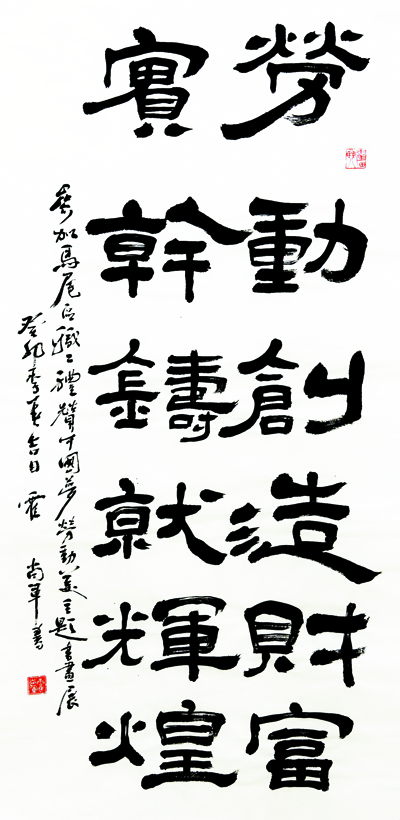 勞動創造財富
實幹鑄就輝煌
參加馬尾區職工禮贊中國夢勞動美主題書畫展
癸卯季春吉日 霍尚軍書